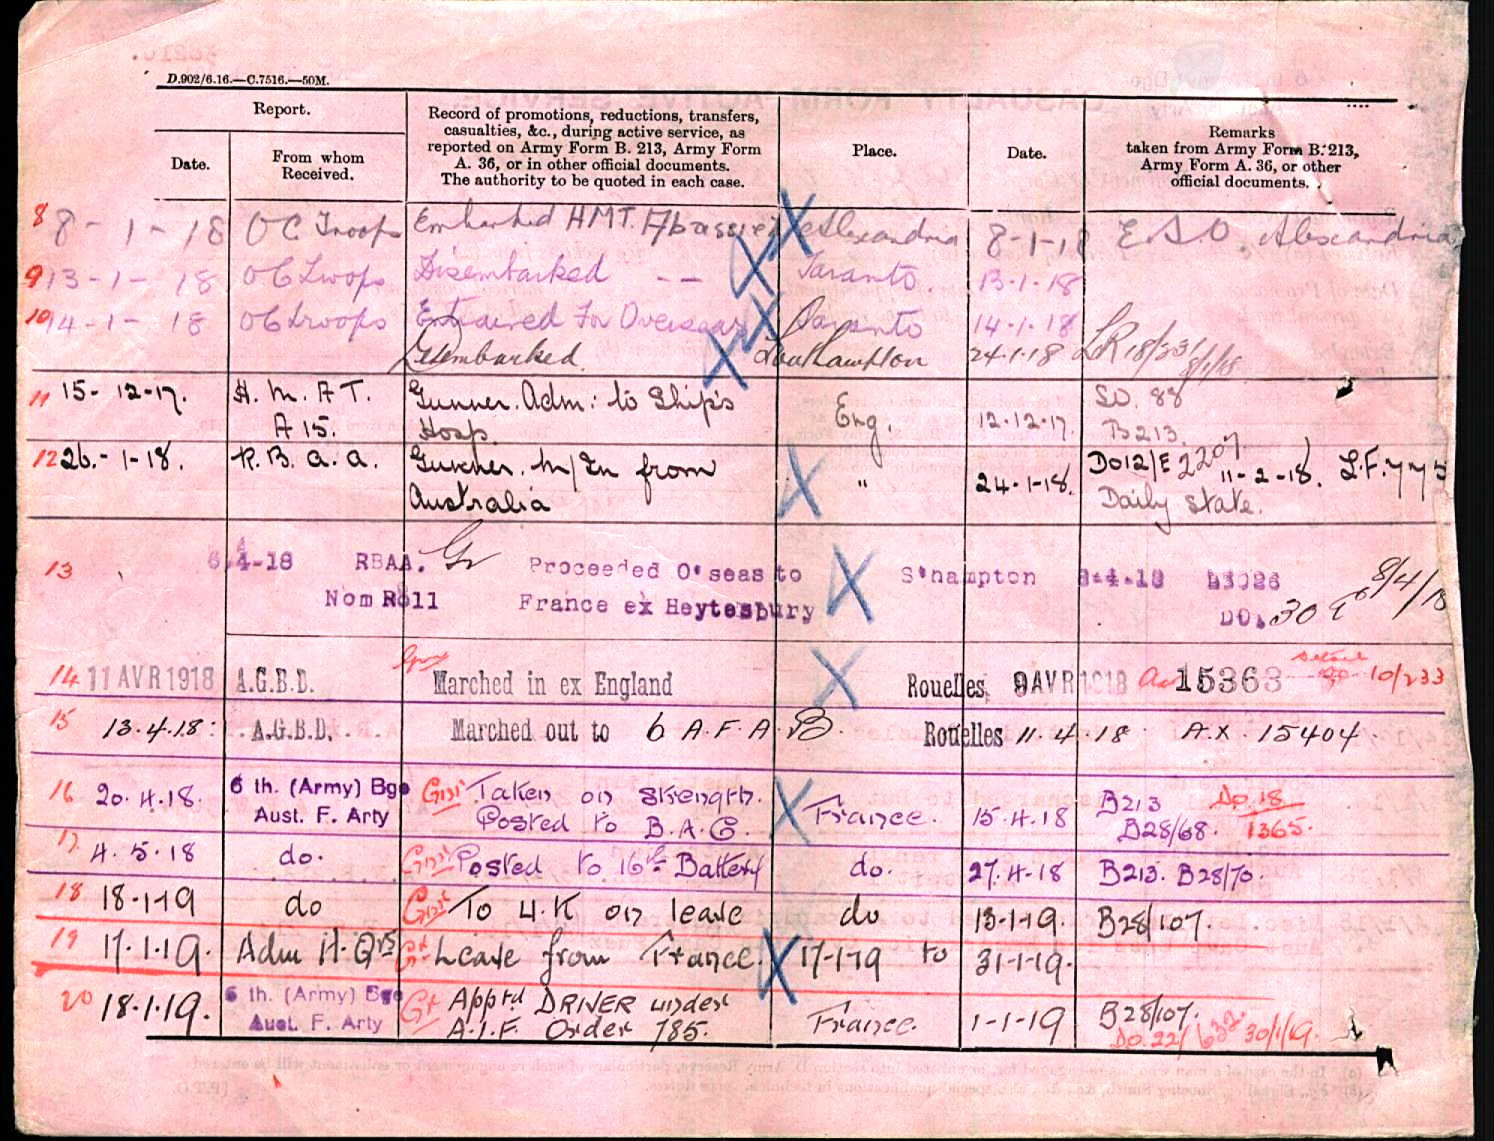 D.902/6.16.—C.7516.—50M.
Report.
Date.
From whom
Received.
Record of promotions, reductions, transfers,
casualties, &c., during active service, as
reported on Army Form B. 213, Army Form
A. 36, or in other official documents.
The authority to be quoted in each case.
Place.
Date.
Remarks
taken from Army Form B. 213,
Army Form A. 36, or other
official documents.
8 8-1-18 OC Troops Embarked HMT. Abassieh Alexandria 8-1-18 E.S.O. Alexandria
9 13-1-18 OC Troops Disembarked -- Taranto. 13-1-18
10 14-1-18 OC Troops Entrained For Overseas Taranto 14-1-18
Disembarked Southampton 24-1-18 LR 18/33
11 15-12-17. H.M.A.T. Gunner. Adm: to Ship's Eng. 12-12-17. SO. 88
A 15. Hosp. B213.
12 26.-1-18. R.B.A.A. Gunner. M/In from " 24-1-18. DO12/E 2207 11-2-18. L.F. 775
Australia Daily State.
13 6-4-18 RBAA. Gr Proceeded O'seas to S'hampton 8-4-18 23026 8/4/18
Nom Roll France ex Heytesbury DO. 30
14 11 AVR 1918 A.G.B.D. Marched in ex England Rouelles 9 AVR 1918 15363 10/233
15 13.4.18: A.G.B.D. Marched out to 6 A.F.A.B. Rouelles 11.4.18 A.X. 15404.
16 20.4.18. 6 th. (Army) Bge Gnr Taken on strength. France. 15.4.18 B213 Do.18
Aust. F. Arty Posted to B.A.C. B28/68. 1365.
17 4.5.18 do. Gnr Posted to 16th Battery do. 27.4-18 B213. B28/70.
18 18-1-19 do Gnr To U.K on leave do 13-1-19. B28/107.
19 17.1.19. Adm H.Qrs Leave from France. 17-1-19 to 31-1-19.
20 18.1.19. 6 th. (Army) Bge Apptd DRIVER under France. 1-1-19 B28/107.
Aust. F. Arty A.I.F. Order 785. Do. 22/632. 30/1/19.